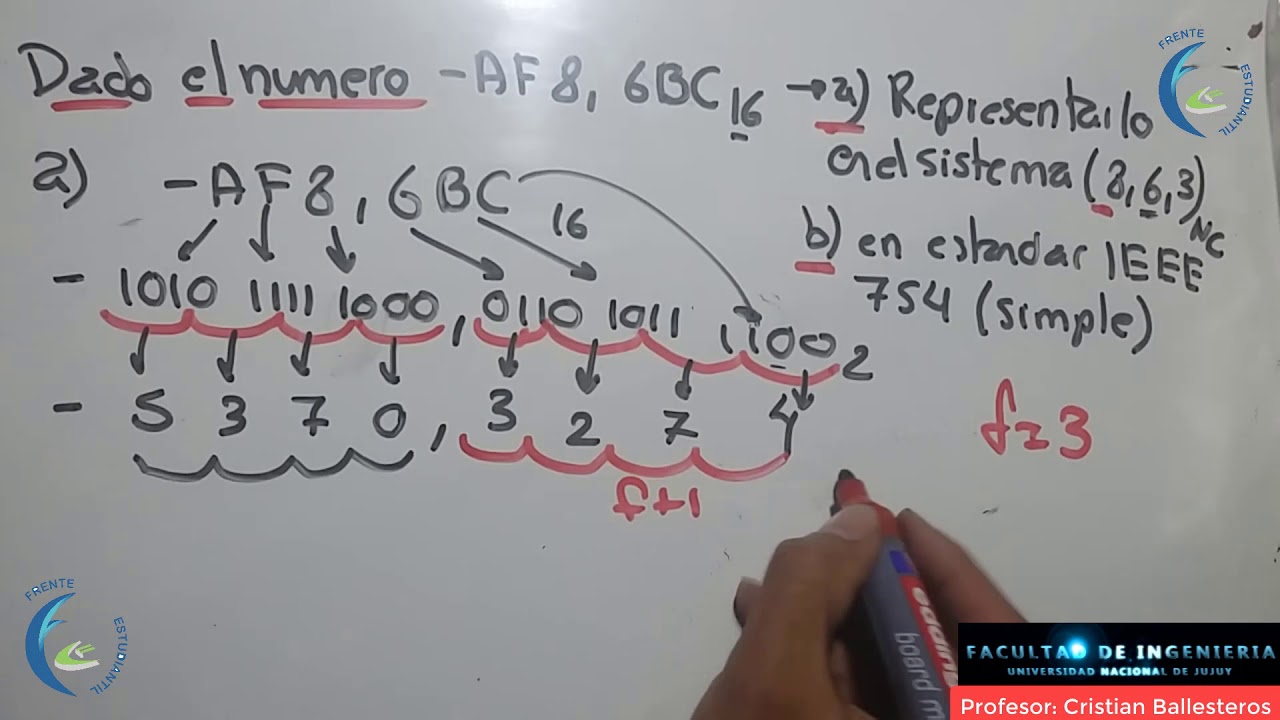 Dado el numero -AF8, 6BC16 → a) Representarlo
en el sistema (8,6,3)NC
b) en estandar IEEE
754 (simple)
a) -AF8,6BC 16
- 1010 1111 1000, 0110 1011 1100 2
- 5 3 7 0, 3 2 7 4
f+1
f=3
FRENTE
ESTUDIANTIL
FRENTE
ESTUDIANTIL
edding
board m
FACULTAD DE INGENIERIA
UNIVERSIDAD NACIONAL DE JUJUY
Profesor: Cristian Ballesteros